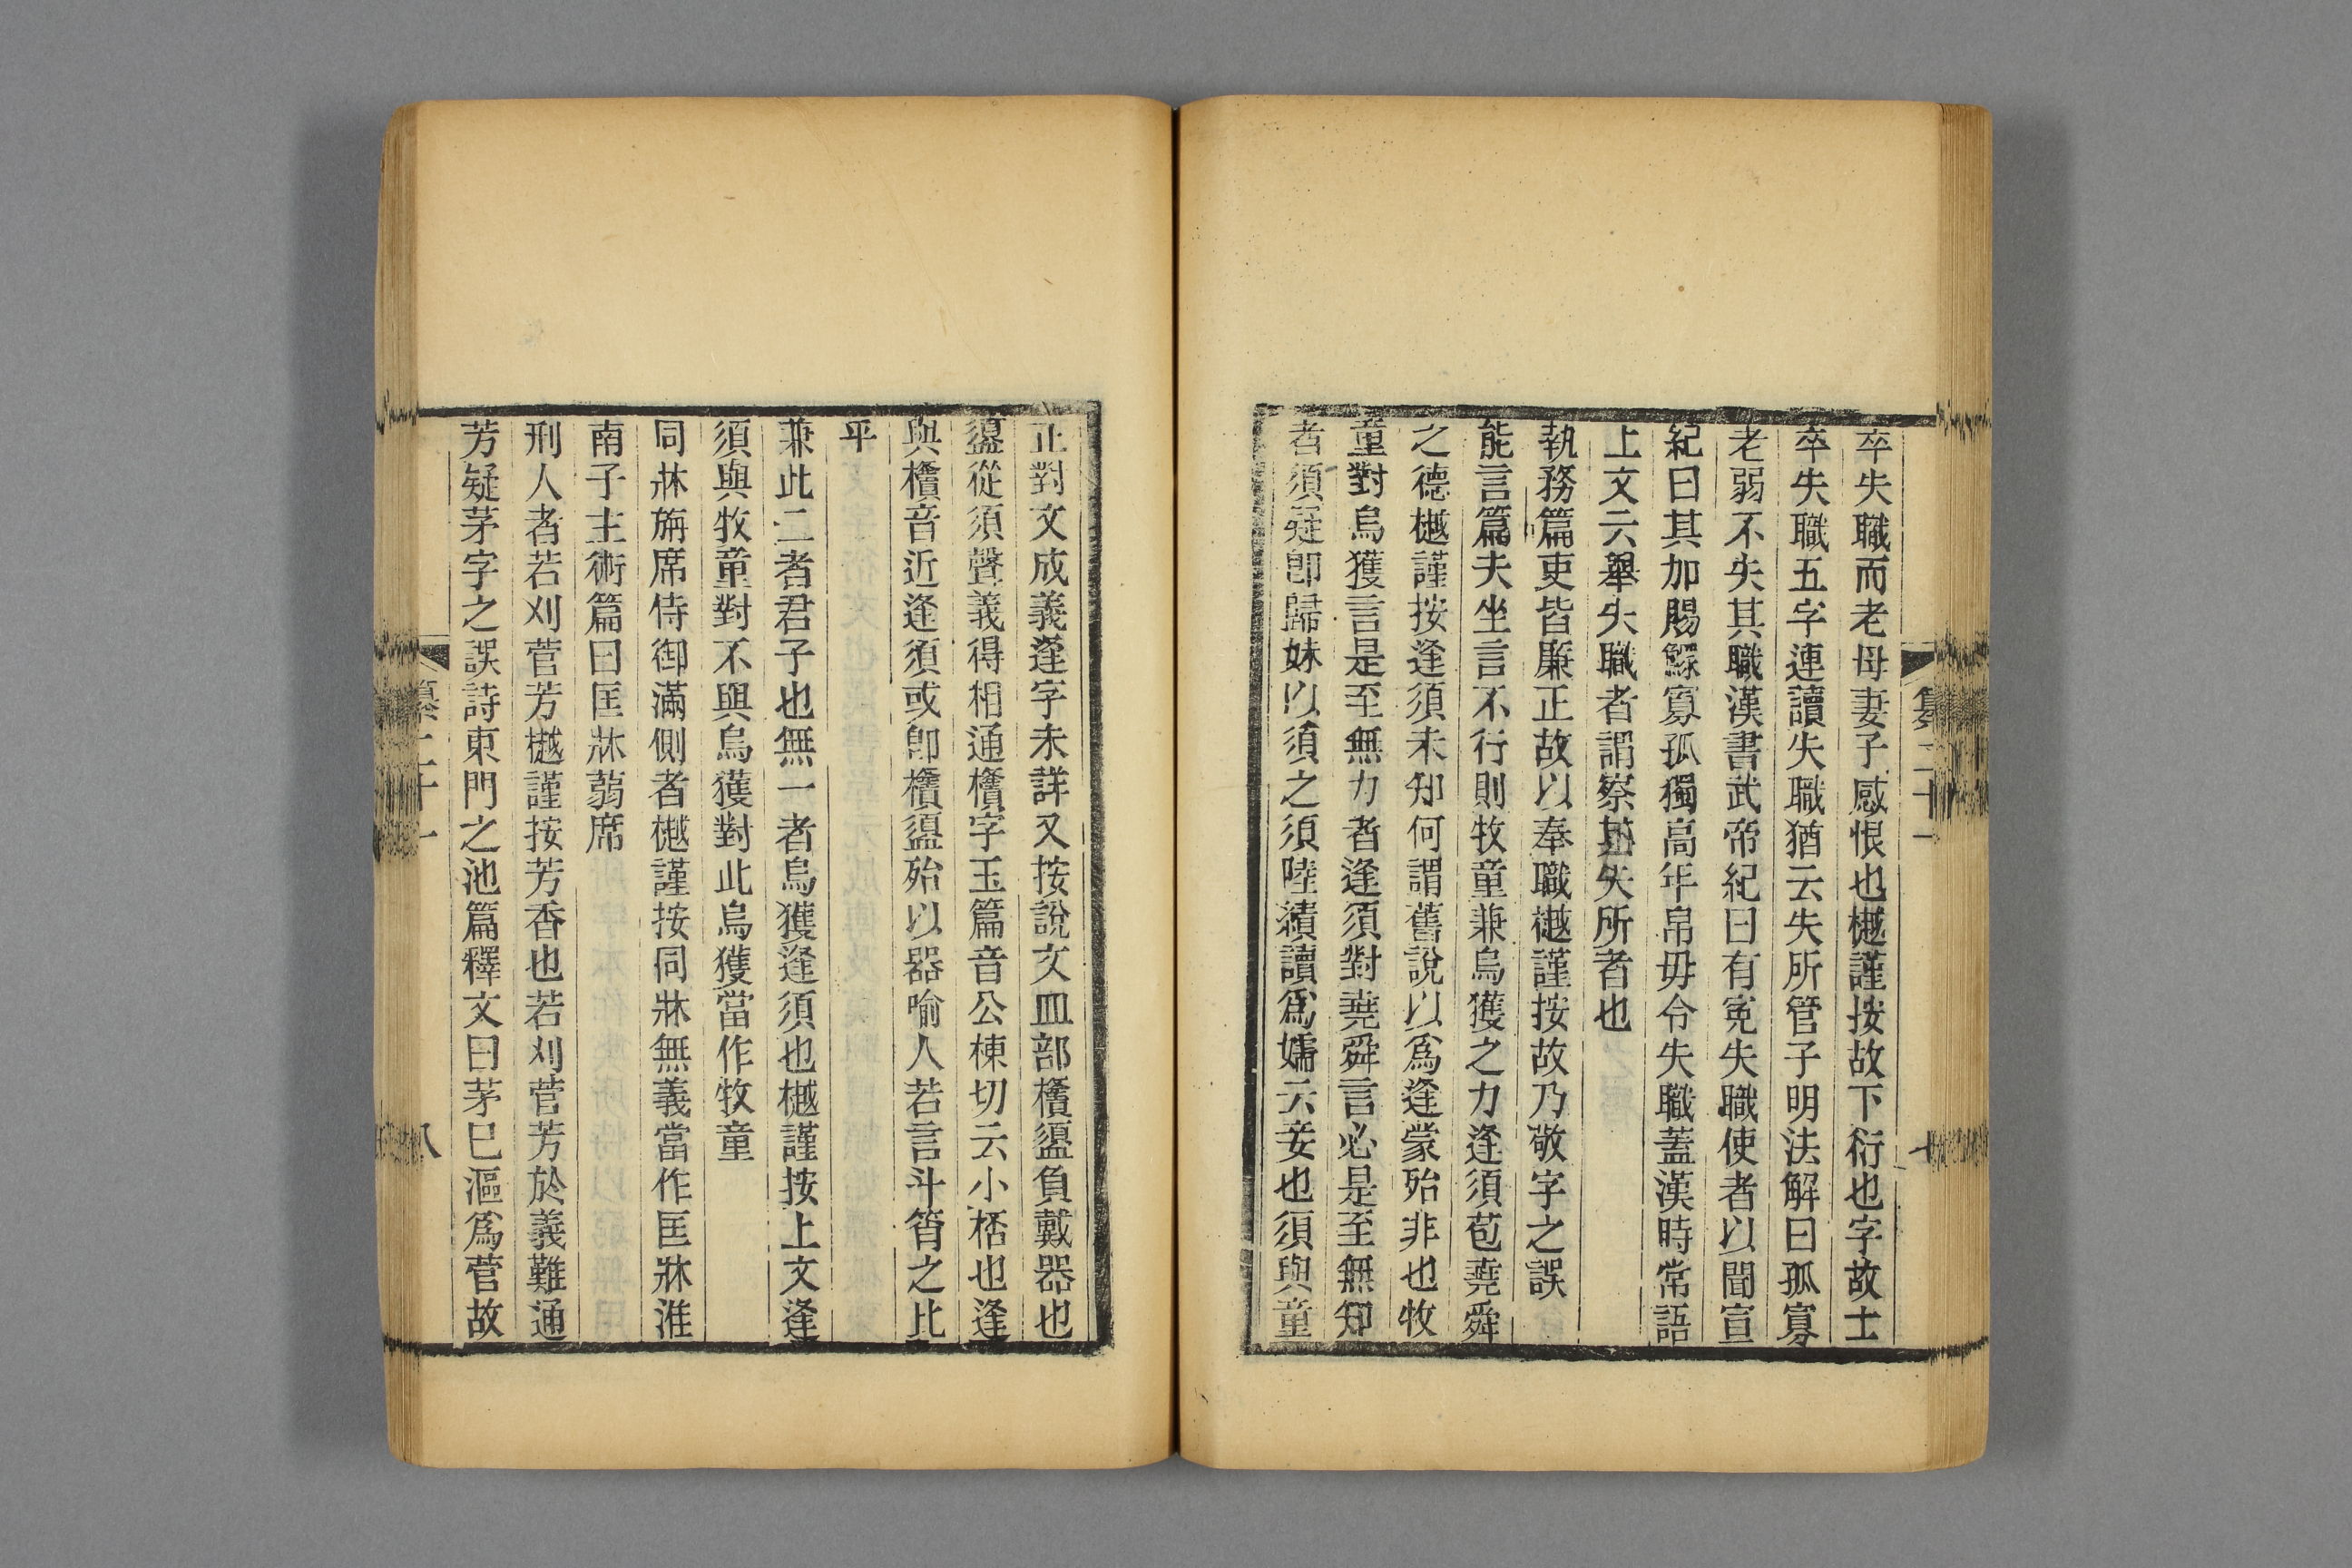 卒失職而老母妻子感恨也樾謹按故下衍也字故士
卒失職五字連讀失職猶云失所管子明法解曰孤寡
老弱不失其職漢書武帝紀曰有冤失職使者以聞宣
紀曰其加賜鰥寡孤獨高年帛毋令失職蓋漢時常語
上文云舉失職者謂察其失所者也
執務篇吏皆廉正故以奉職樾謹按故乃敬字之誤
能言篇夫坐言不行則牧童兼烏獲之力逢須苞堯舜
之德樾謹按逢須未知何謂舊說以爲逢蒙殆非也牧
童對烏獲言是至無力者逢須對堯舜言必是至無知
者須疑卽歸妹以須之須陸績讀爲嬬云妾也須與童
正對文成義逢字未詳又按說文皿部㯼盨負戴器也
盨從須聲義得相通㯼字玉篇音公棟切云小桮也逢
與㯼音近逢須或卽㯼盨殆以器喻人若言斗筲之比
乎
兼此二者君子也無一者烏獲逢須也樾謹按上文逢
須與牧童對不與烏獲對此烏獲當作牧童
同牀旃席侍御滿側者樾謹按同牀無義當作匡牀淮
南子主術篇曰匡牀蒻席
刑人者若刈菅芳樾謹按芳香也若刈菅芳於義難通
芳疑茅字之誤詩東門之池篇釋文曰茅巳漚爲菅故
纂二十一
七
八